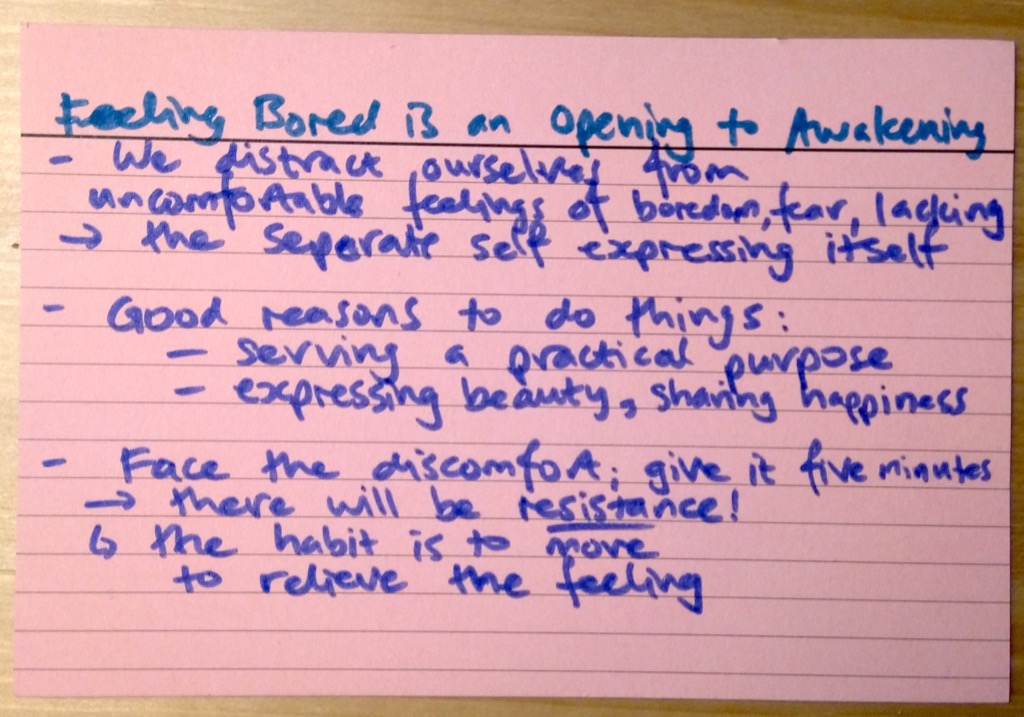 Feeling Bored is an Opening to Awakening
- We distract ourselves from
uncomfortable feelings of boredom, fear, lacking
→ the separate self expressing itself
- Good reasons to do things:
- serving a practical purpose
- expressing beauty, sharing happiness
- Face the discomfort; give it five minutes
→ there will be resistance!
↳ the habit is to move
to relieve the feeling